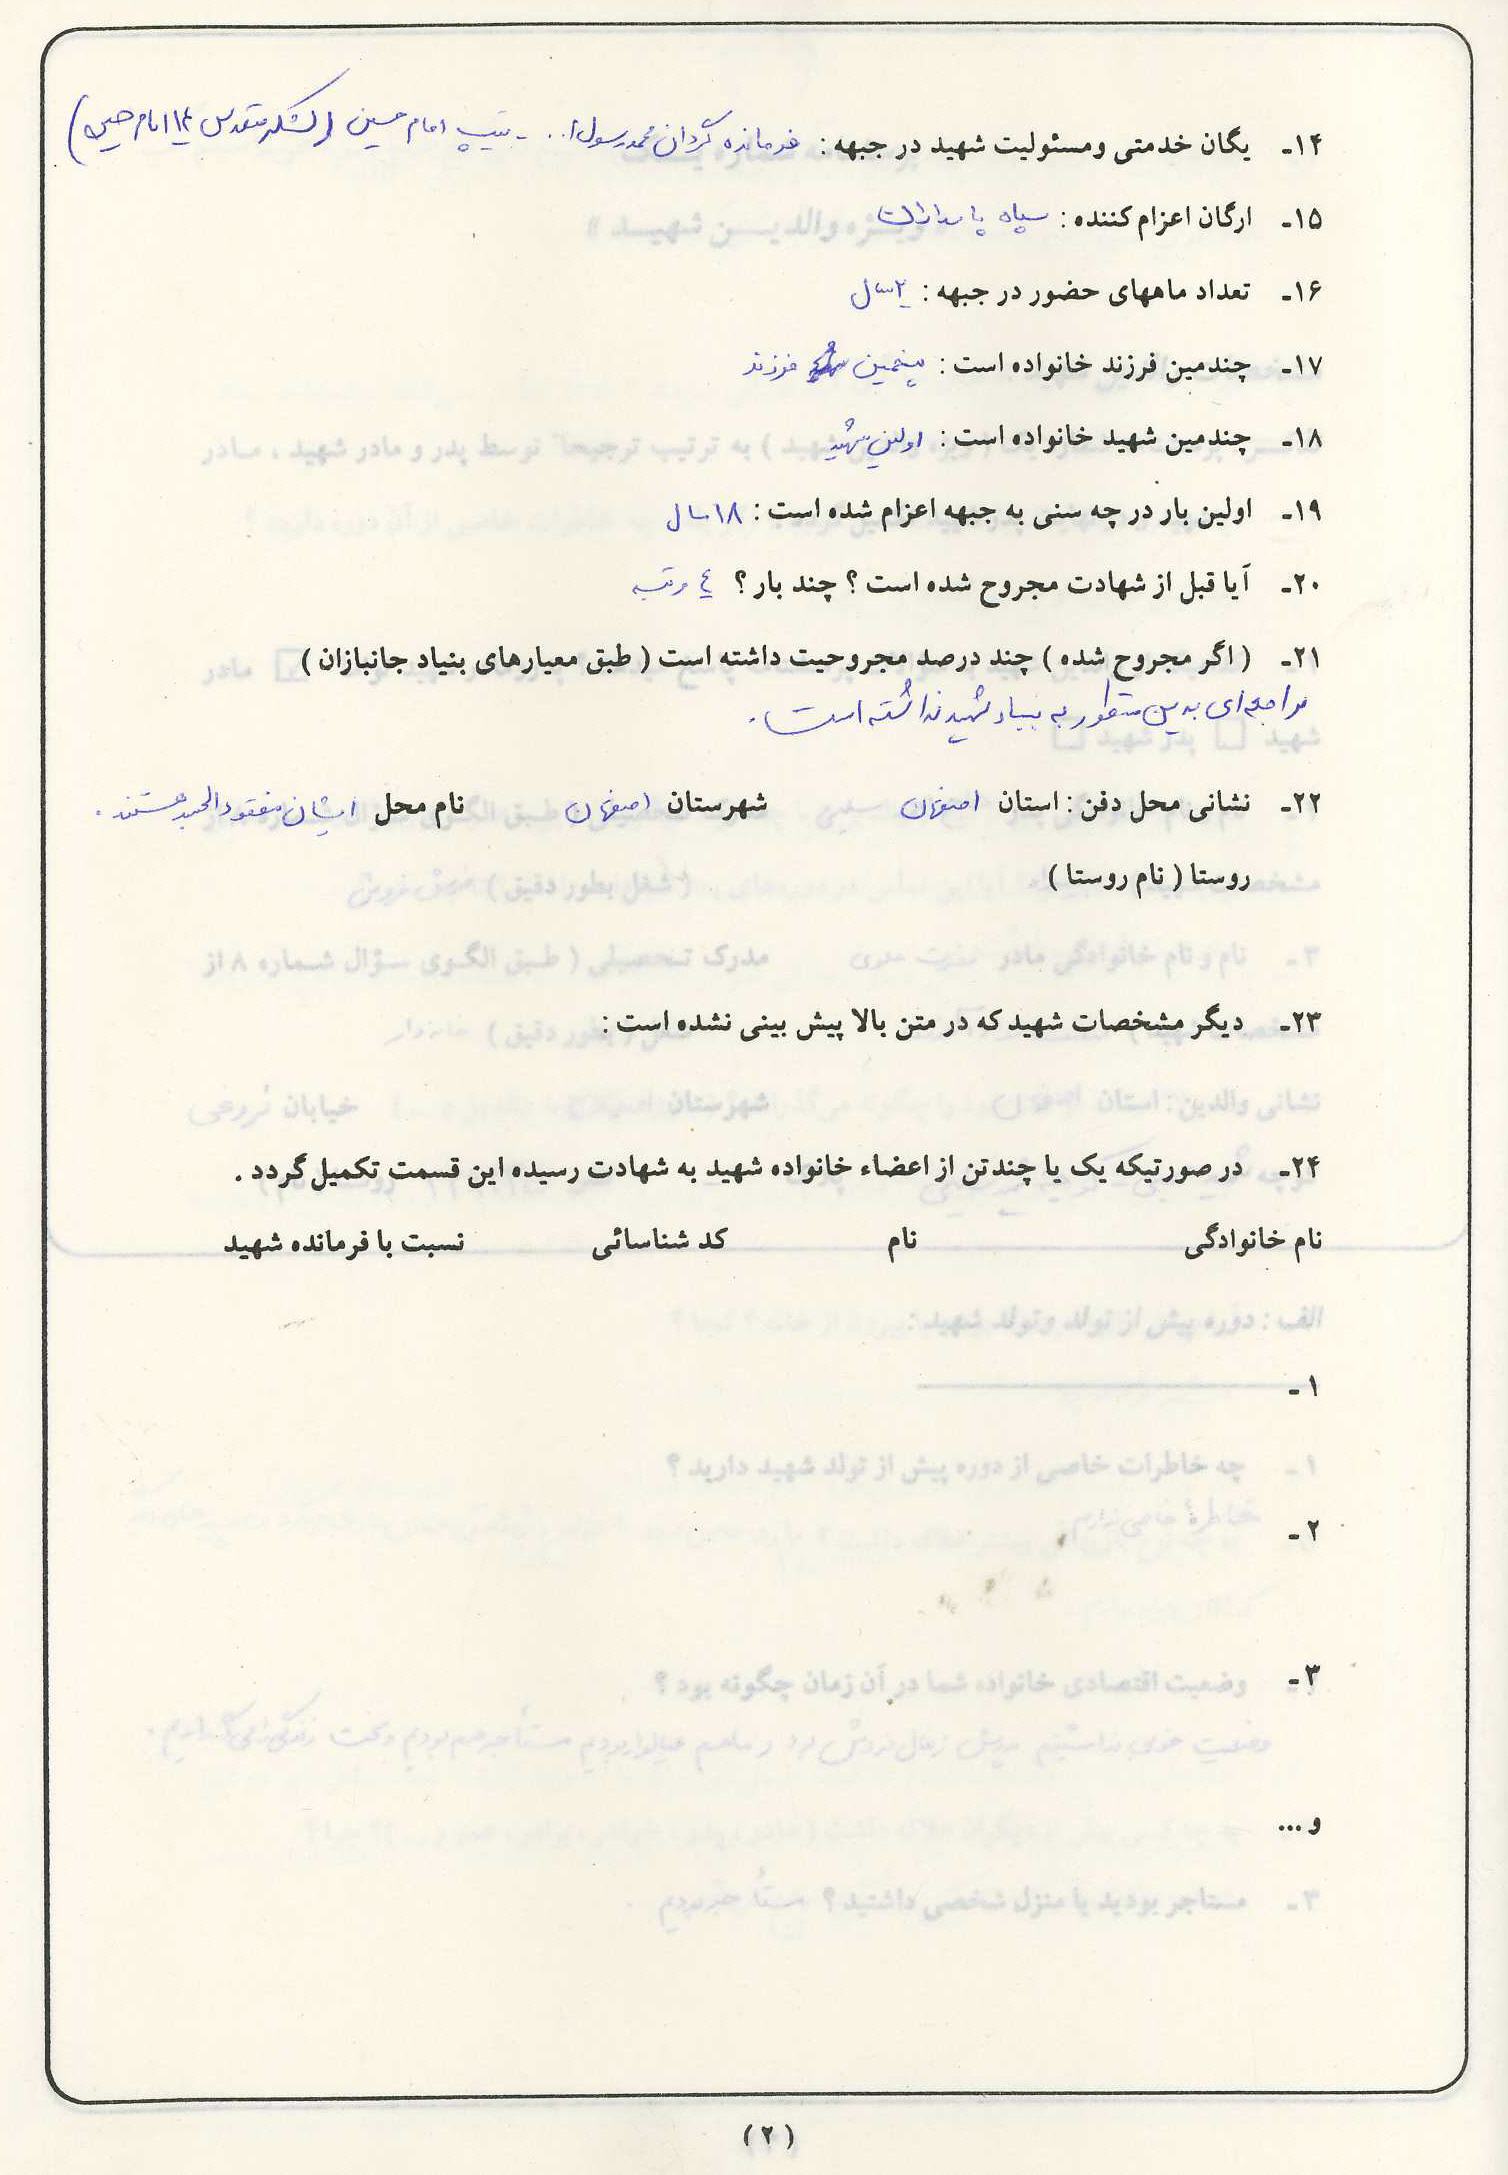 ۱۴- یگان خدمتی ومسئولیت شهید در جبهه : فرمانده گردان محمد رسول ا... - تیپ امام حسین (لشکر مقدس ۱۴ امام حسین)
۱۵- ارگان اعزام کننده : سپاه پاسداران
۱۶- تعداد ماههای حضور در جبهه : ۲ سال
۱۷- چندمین فرزند خانواده است : پنجمین فرزند
۱۸- چندمین شهید خانواده است : اولین شهید
۱۹- اولین بار در چه سنی به جبهه اعزام شده است : ۱۸ سال
۲۰- آیا قبل از شهادت مجروح شده است ؟ چند بار ؟ ٤ مرتبه
۲۱- ( اگر مجروح شده ) چند درصد مجروحیت داشته است ( طبق معیارهای بنیاد جانبازان )
مراجعه‌ای بدین منظور به بنیاد شهید نداشته است.
۲۲- نشانی محل دفن : استان اصفهان شهرستان اصفهان نام محل ایشان مفقودالجسد هستند.
روستا ( نام روستا )
۲۳- دیگر مشخصات شهید که در متن بالا پیش بینی نشده است :
۲۴- در صورتیکه یک یا چندتن از اعضاء خانواده شهید به شهادت رسیده این قسمت تکمیل گردد .
نام خانوادگی نام کد شناسائی نسبت با فرمانده شهید
۱-
۲-
۳-
و ...
( ۲ )